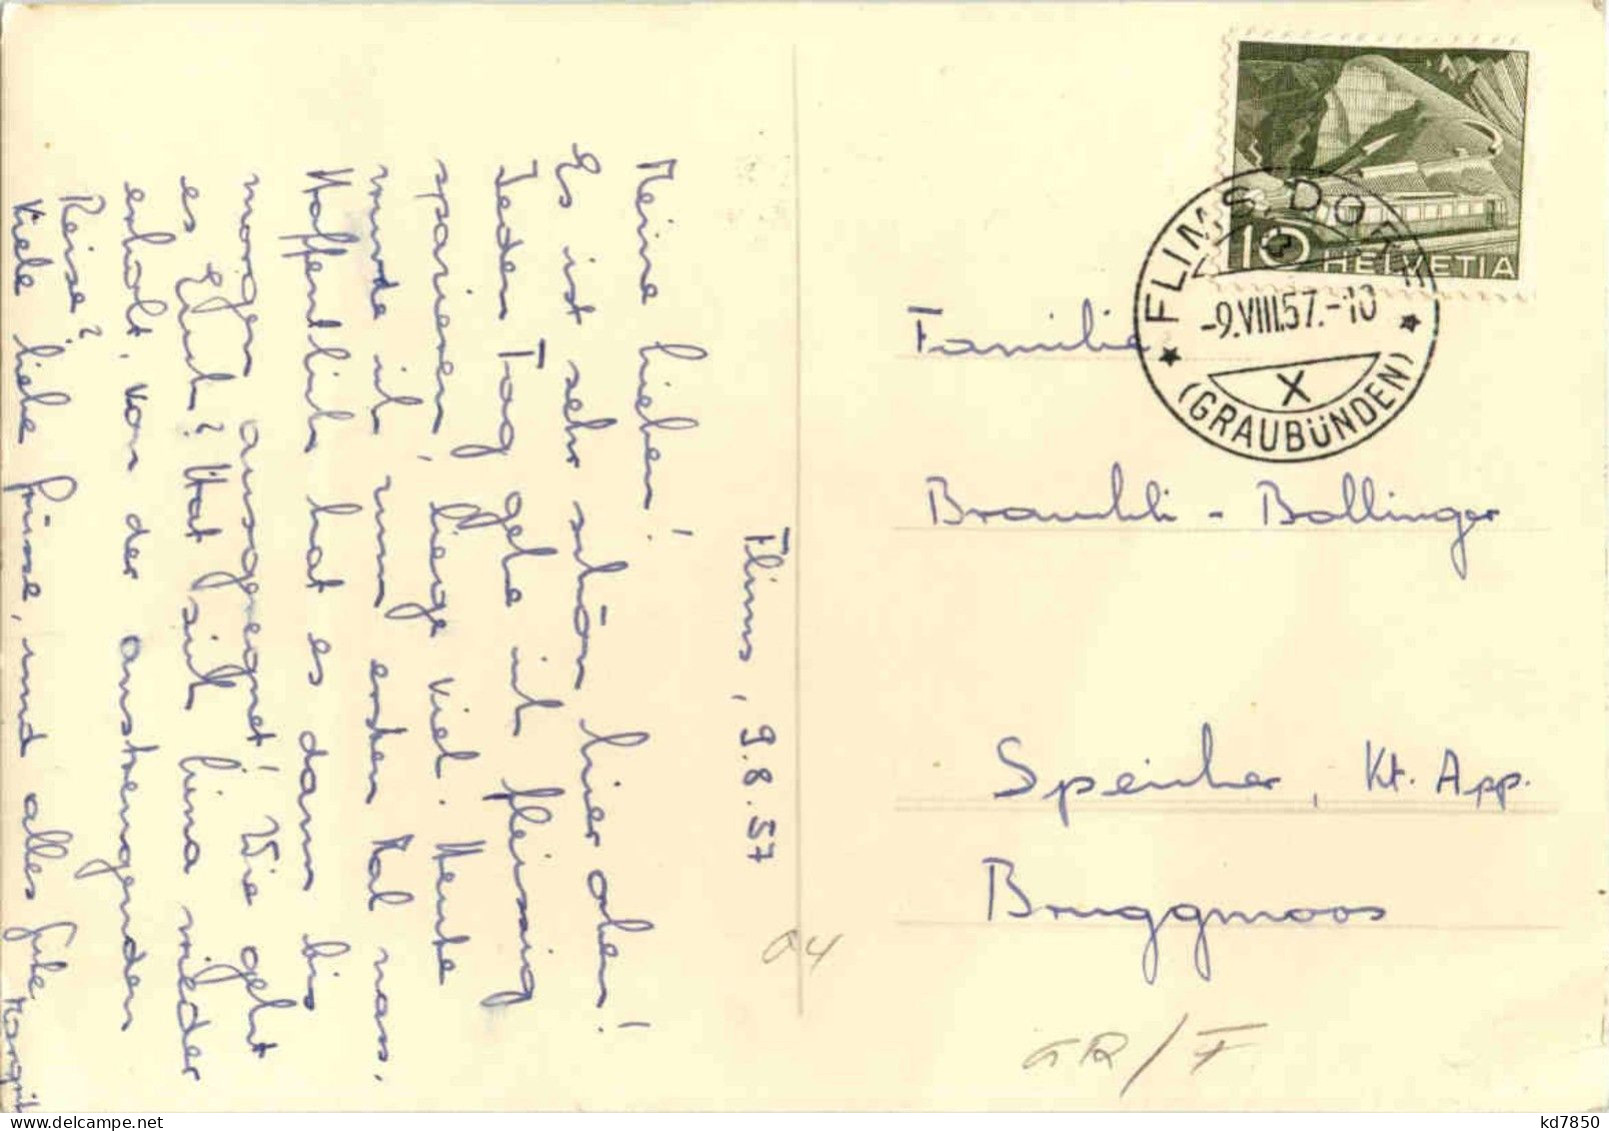 Flims, 9.8.57
Meine lieben!
Es ist sehr schön hier oben!
Jeden Tag gehe ich fleissig
spazieren, liege viel. Heute
wurde ich zum ersten Mal nass.
Hoffentlich hat es dann bis
morgen ausgeregnet! Wie geht
es Euch? Hat sich Lina wieder
erholt, von der anstrengenden
Reise?
Viele liebe Grüsse, und alles Gute
Margrit
HELVETIA
10
FLIMS DORF
-9.VIII.57.-10
X
(GRAUBÜNDEN)
Familie
Brauchli - Bollinger
Speicher, Kt. App.
Bruggmoos
04
GR/F
kd7850